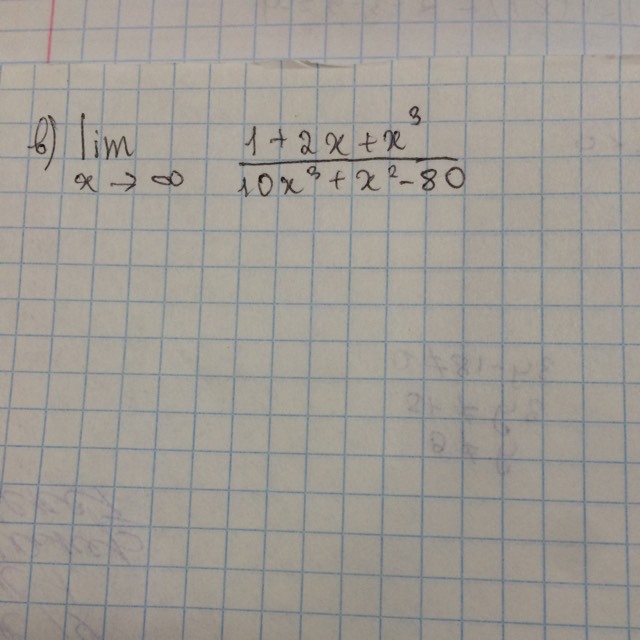 в) lim 1 + 2x + x³
x → ∞ 10x³ + x² - 80